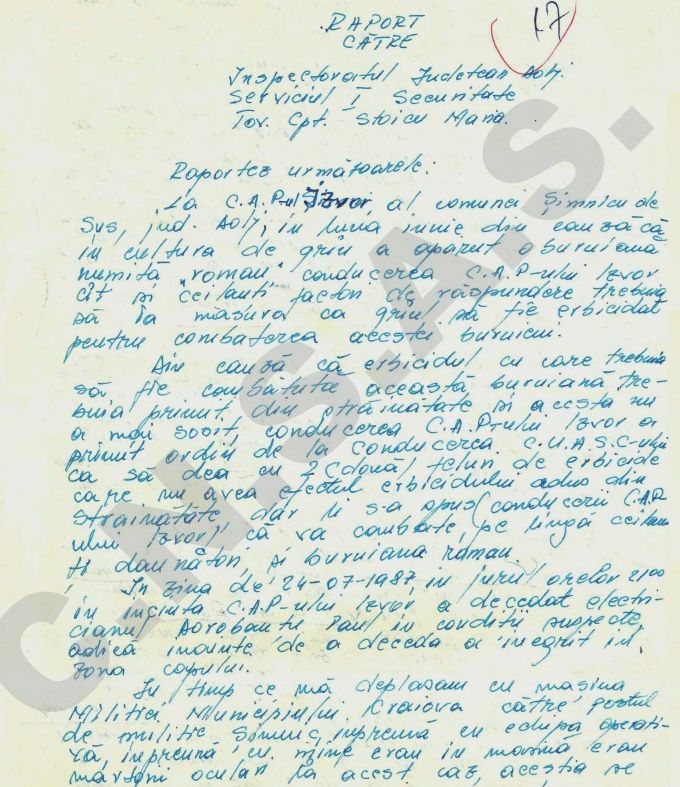 17
RAPORT
CĂTRE
Inspectoratul Județean Dolj.
Serviciul I Securitate
Tov. Cpt. Stoicu Mana.
Raportez următoarele:
La C.A.P-ul Izvor, al comunei Șimnicu de
Sus, jud. Dolj, în luna iunie din cauză că
în cultura de grîu a apărut o buruiană
numită "roman" conducerea C.A.P-ului Izvor
cît și ceilanti factori de răspundere trebuia
să ia măsura ca grîul să fie erbicidat
pentru combaterea acestei buruieni.
Din cauză că erbicidul cu care trebuia
să fie combătută această buruiană tre-
buia primit din străinătate și acesta nu
a mai sosit, conducerea C.A.P-ului Izvor a
primit ordin de la Conducerea C.U.A.S.C-ului
ca să dea cu 2(două) feluri de erbicide
care nu avea efectul erbicidului adus din
străinătate dar li s-a spus(conducerii C.A.P
ului Izvor), că va combate, pe lîngă ceilan
ți dăunători, și buruiana roman
În ziua de 24-07-1987, în jurul orelor 2100
în incinta C.A.P-ului Izvor a decedat electri-
cianul Dorobantu Paul în condiții suspecte,
adică înainte de a deceda a înegrit în
zona capului.
În timp ce mă deplasam cu mașina
Miliției Municipiului Craiova către Postul
de miliție Simnic, înpreună cu echipa operati-
vă, înpreună cu mine erau în mașină erau
martori oculari la acest caz, aceștia se
C.N.S.A.S.